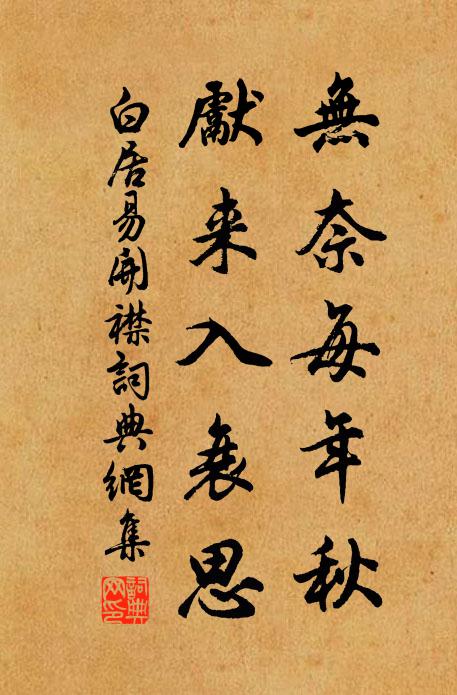 無奈每年秋
獻来入衰思
白居易開襟詞典網集
詞典
网印